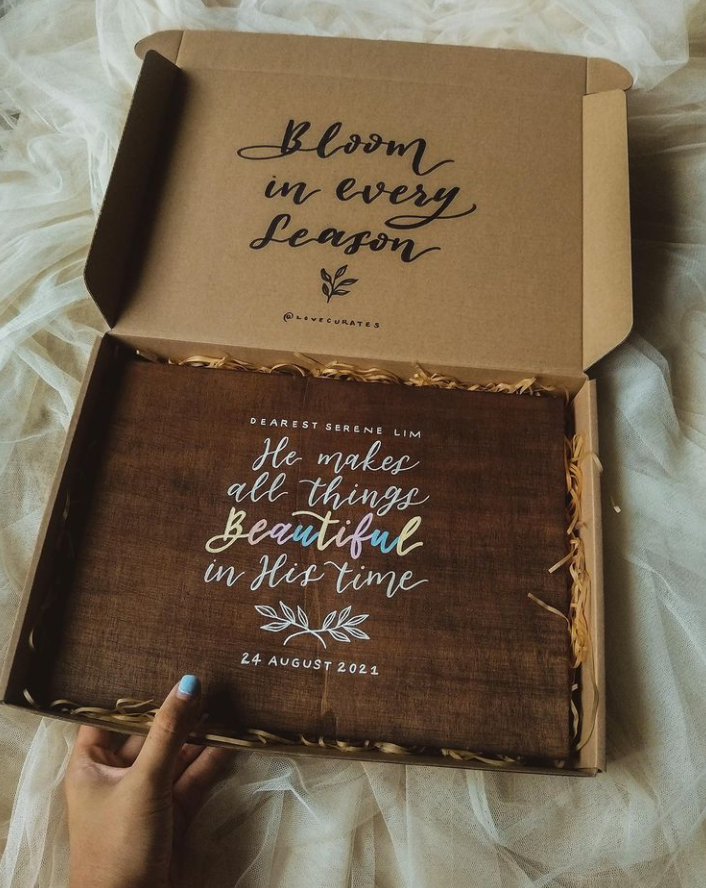 Bloom
in every
Season
@LOVECURATES
DEAREST SERENE LIM
He makes
all things
Beautiful
in His time
24 AUGUST 2021